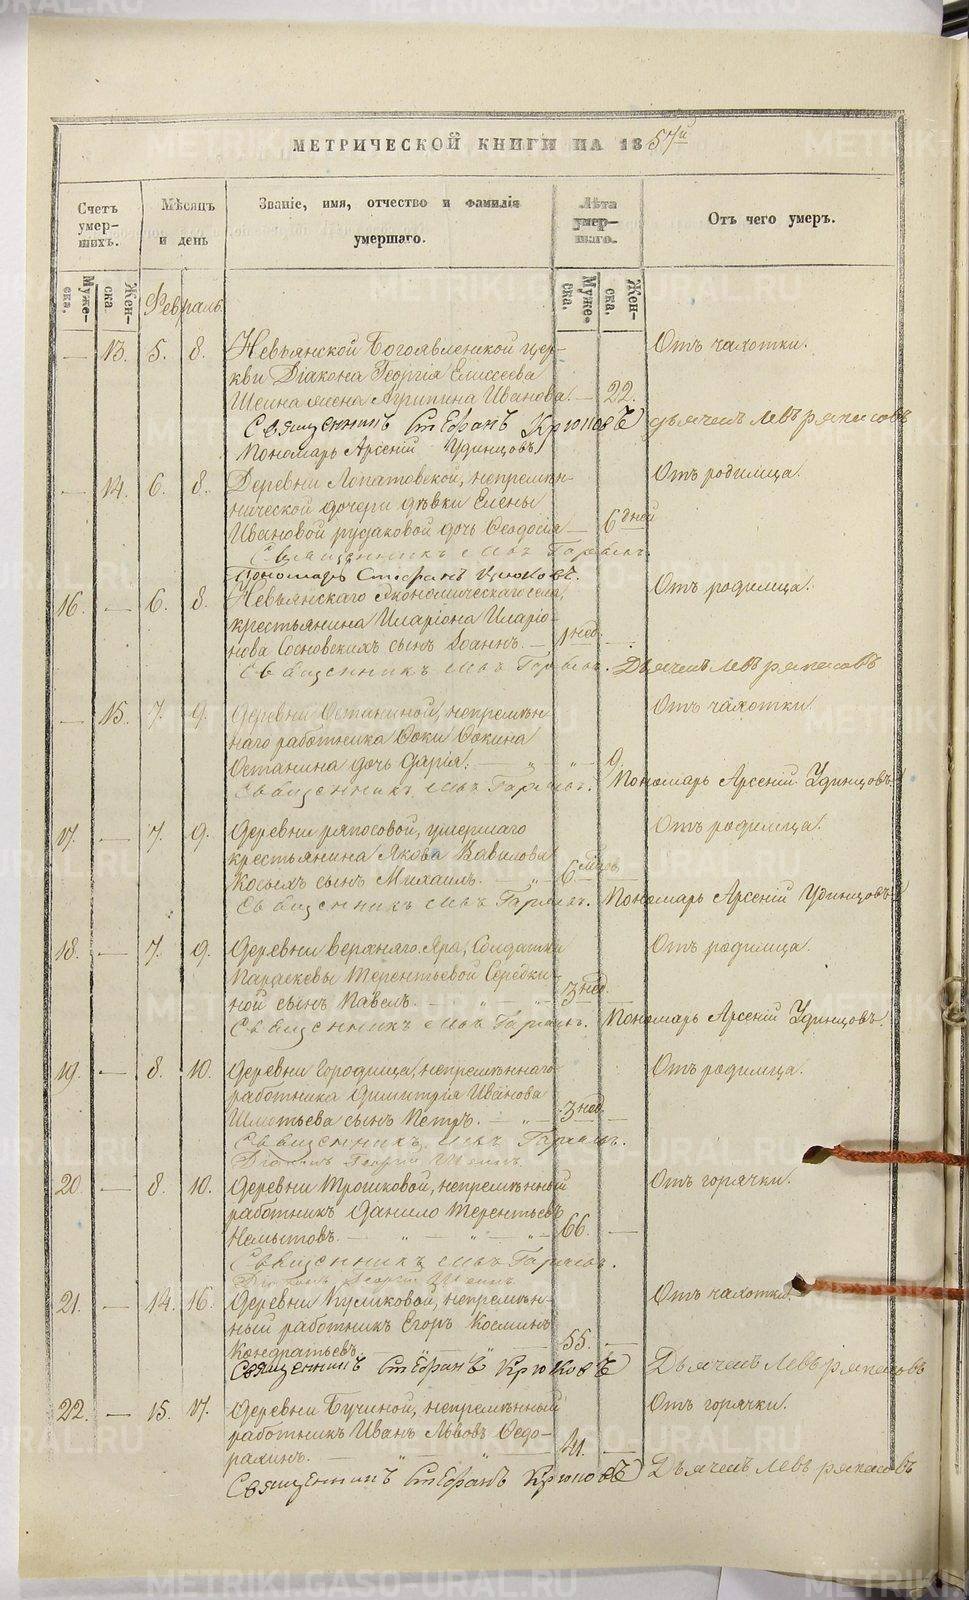 МЕТРИЧЕСКОЙ КНИГИ НА 1857й
Счетъ умер-шихъ.
Мѣсяцъ и день
Званіе, имя, отчество и фамилія умершаго.
Лѣта умер-шаго.
Отъ чего умеръ.
Муже-ска.
Жен-ска.
Муже-ска.
Жен-ска.
Февраль.
— 13. 5. 8. Невьянской Богоявленской цер- Отъ чахотки.
кви Діакона Георгія Елисеева
Шеина жена Агрипина Иванова. — 22.
Священникъ Стефанъ Крюковъ Дьячекъ Левъ Ряпасовъ
Пономарь Арсеній Удинцовъ
— 14. 6. 8. Деревни Лопатовской, непремѣн- Отъ родимца.
нической дочери дѣвки Елены
Ивановой Рудаковой дочь Ѳеодосія — 6 дней
Священникъ
Пономарь Стефанъ Крюковъ.
16. — 6. 8. Невьянскаго Экономическаго села, Отъ родимца.
крестьянина Иларіона Иларіо-
нова Сосновскихъ сынъ Іоаннъ. — 1 нед.
Священникъ Дьячекъ Левъ Ряпасовъ
— 15. 7. 9. Деревни Останиной, непремѣн- Отъ чахотки.
наго работника Фоки Фокина
Останина дочь Дарія. — „ — „ — 9.
Священникъ Пономарь Арсеній Удинцовъ
17. — 7. 9. Деревни Ряпосовой, умершаго Отъ родимца.
крестьянина Якова Вавилова
Косыхъ сынъ Михаилъ. — „ — 6 мѣсъ
Священникъ Пономарь Арсеній Удинцовъ
18. — 7. 9. Деревни Верхняго Яра, Солдатки Отъ родимца.
Параскевы Терентьевой Середки-
ной сынъ Павелъ. — „ — „ — 3 нед.
Священникъ Пономарь Арсеній Удинцовъ.
19. — 8. 10. Деревни Городища, непремѣннаго Отъ родимца.
работника Димитрія Иванова
сынъ Петръ. — „ — 3 нед.
Священникъ
Діаконъ Георгій Шеинъ.
20. — 8. 10. Деревни Трошковой, непремѣнный Отъ горячки.
работникъ Данило Терентьевъ
Немытовъ. — „ — „ — „ — 66.
Священникъ
Діаконъ Георгій Шеинъ.
21. — 14. 16. Деревни Куликовой, непремѣн- Отъ чахотки.
ный работникъ Егоръ Косминъ
Кондратьевъ — 55.
Священникъ Стефанъ Крюковъ Дьячекъ Левъ Ряпасовъ
22. — 15. 17. Деревни Бучиной, непремѣнный Отъ горячки.
работникъ Иванъ Львовъ Ѳедо-
рахинъ. — 41.
Священникъ Стефанъ Крюковъ Дьячекъ Левъ Ряпасовъ
METRIKI.GASO-URAL.RU